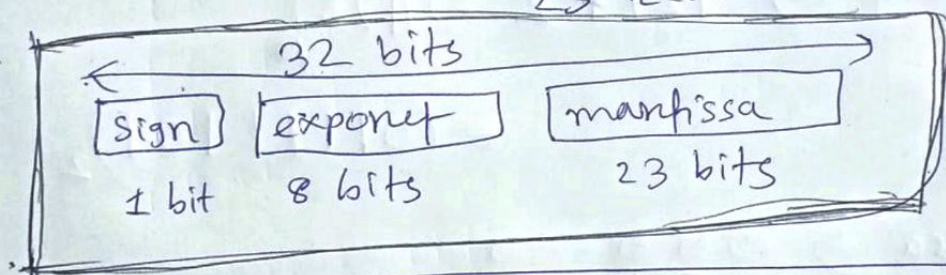 32 bits
sign exponet mantissa
1 bit 8 bits 23 bits